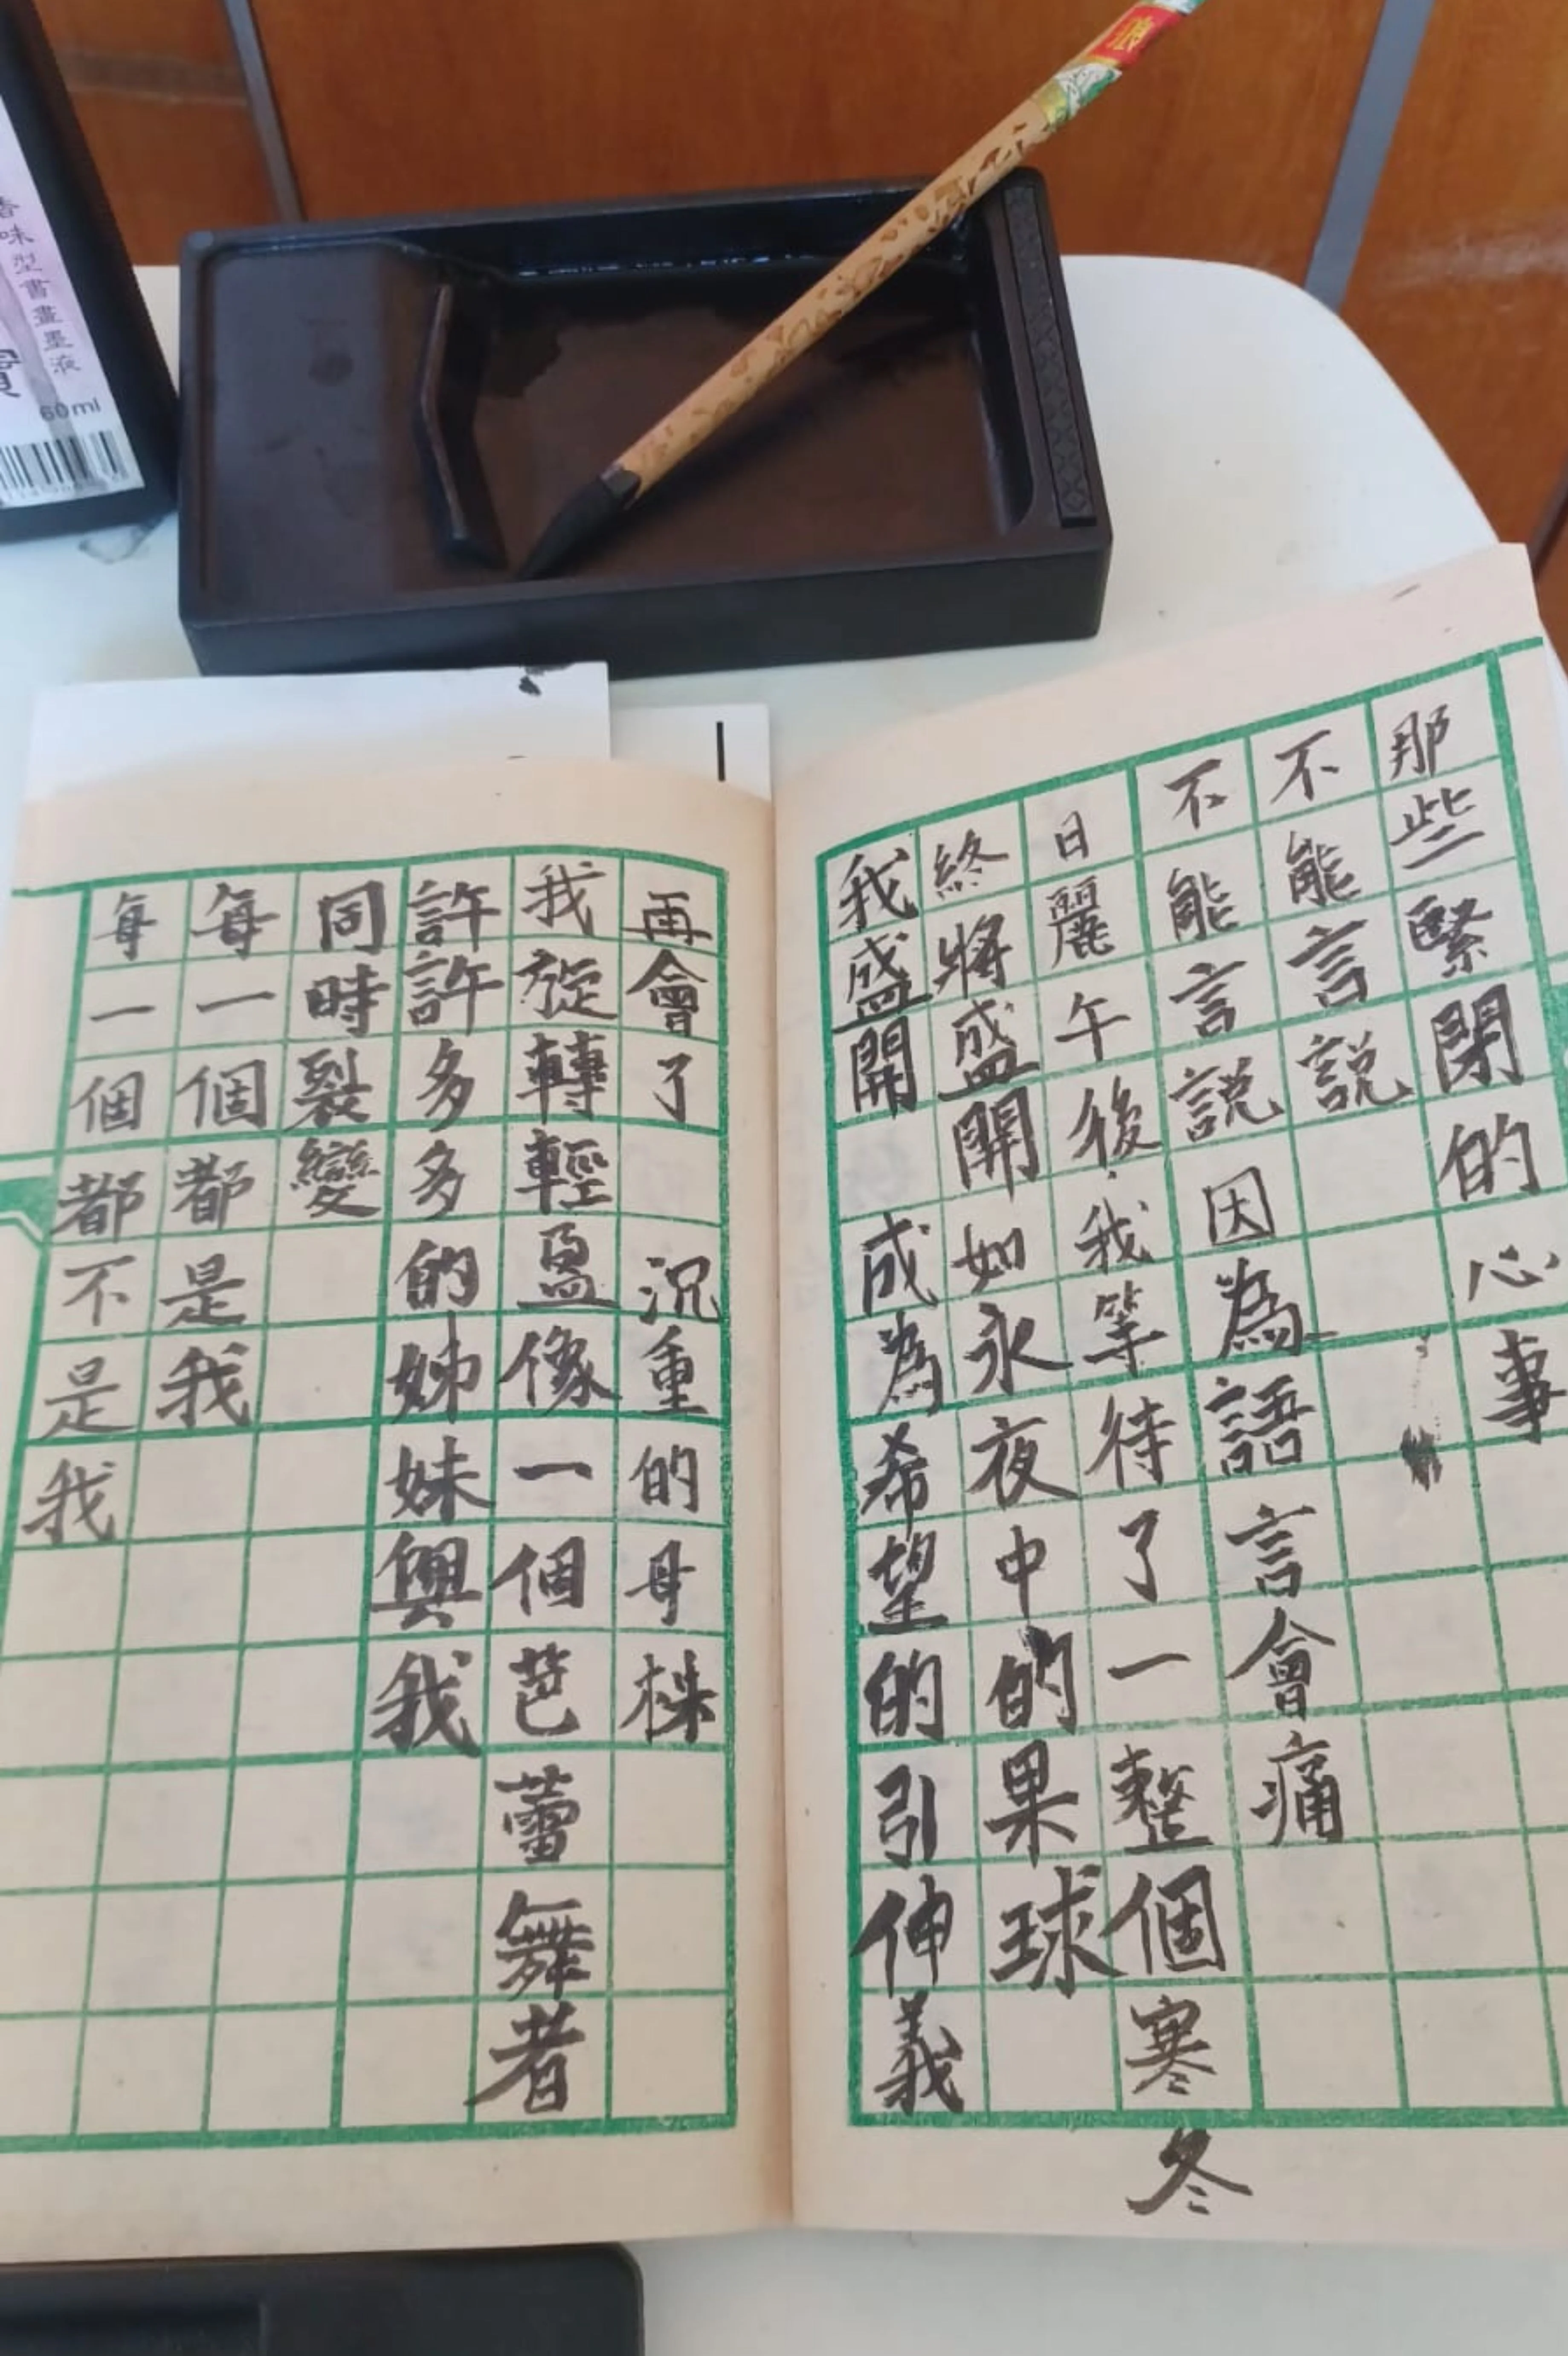 那些緊閉的心事
不能言說
不能言說因為語言會痛
日麗午後，我等待了一整個寒冬
終將盛開如永夜中的果球
我盛開 成為希望的引伸義
再會了 沉重的母株
我旋轉輕盈像一個芭蕾舞者
許許多多的姊妹與我
同時裂變
每一個都是我
每一個都不是我
香味型書畫墨液
寶
60ml